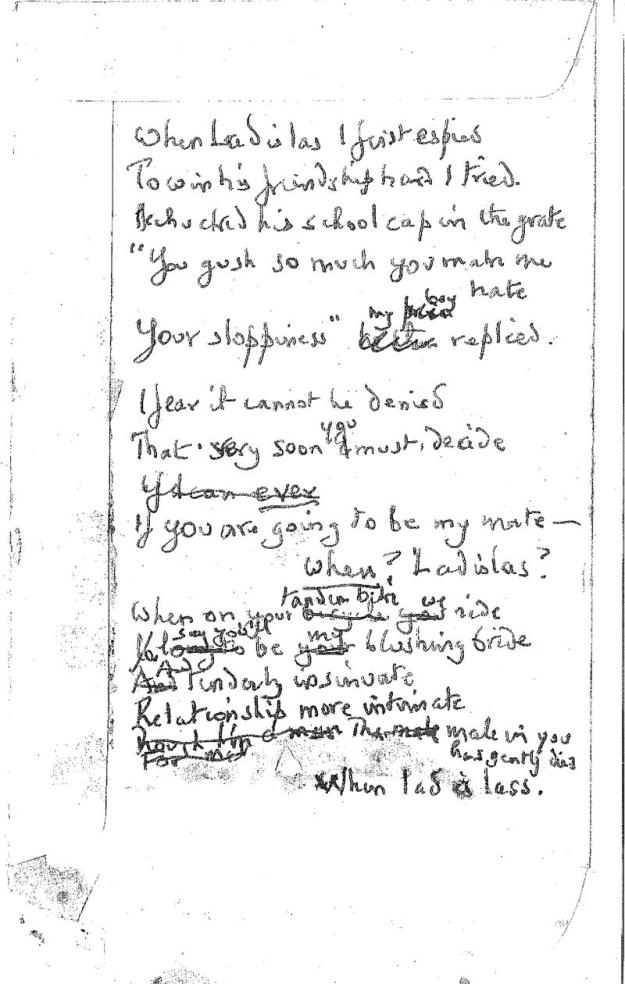 When Ladislas I first espied
To win his friendship hard I tried.
He chucked his school cap in the grate
"You gush so much you make me
hate
my boy
Your sloppiness" replied.
I fear it cannot be denied
That very soon you must decide
If you are going to be my mate —
When? Ladislas?
tandem bike we
When on your ride
say you'll my
to be your blushing bride
And
And tenderly insinuate
Relationship more intimate
The male in you
For me
has gently died
When lad is lass.